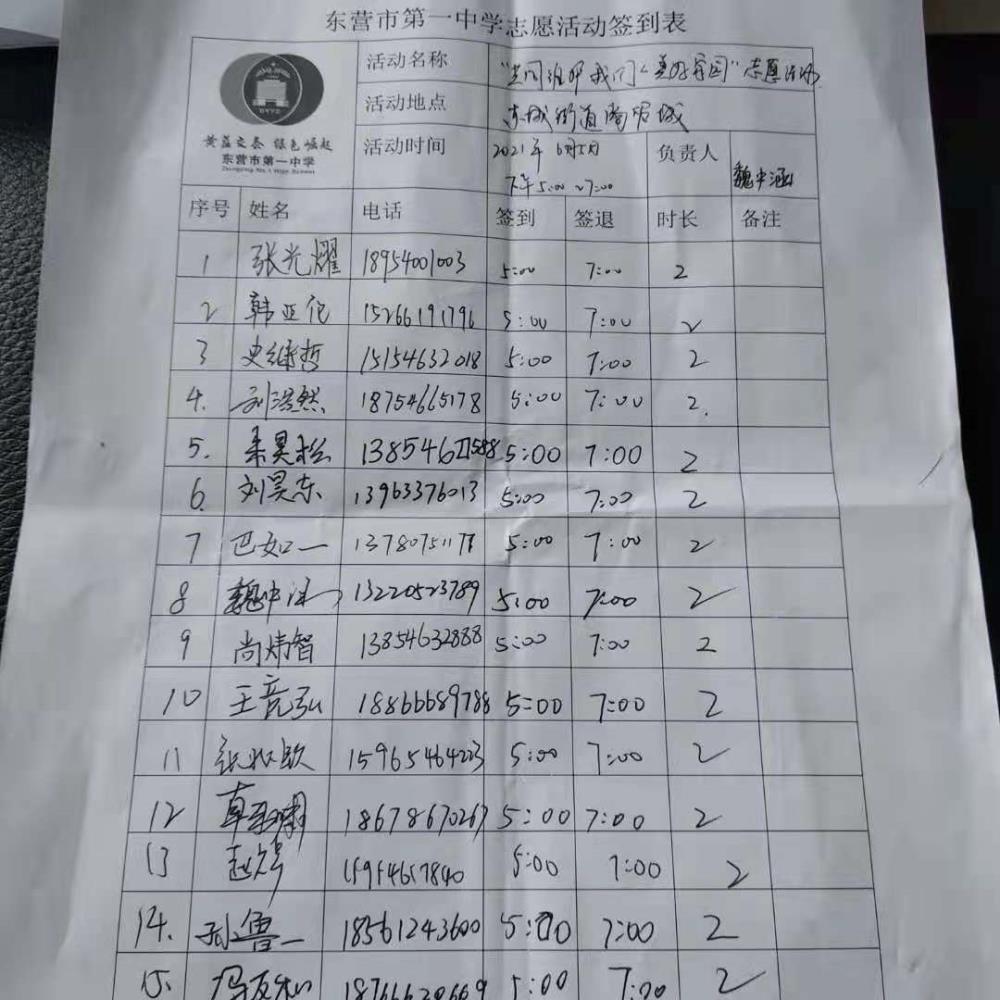 东营市第一中学志愿活动签到表
活动名称 "共同维护我们的美好家园"志愿活动
黄蓝交奏 银色崛起
东营市第一中学
活动地点 东城街道
活动时间 2021年 6月5日 下午5:00~7:00 负责人 魏中涵
序号 姓名 电话 签到 签退 时长 备注
1 张光耀 18954001003 5:00 7:00 2
2 韩亚伦 15266191796 5:00 7:00 2
3 史继哲 15154632018 5:00 7:00 2
4. 刘浩然 18754665178 5:00 7:00 2.
5. 5:00 7:00 2
6. 刘昊东 13963376013 5:00 7:00 2
7 巴如一 5:00 7:00 2
8 魏中涵 13220523789 5:00 7:00 2
9 尚炜智 13854632888 5:00 7:00 2
10 王竞弘 18866689788 5:00 7:00 2
11 15965464223 5:00 7:00 2
12 18678670267 5:00 7:00 2
13 15954657840 5:00 7:00 2
14. 孙鲁一 18561243600 5:00 7:00 2
15. 18766620669 5:00 7:00 2